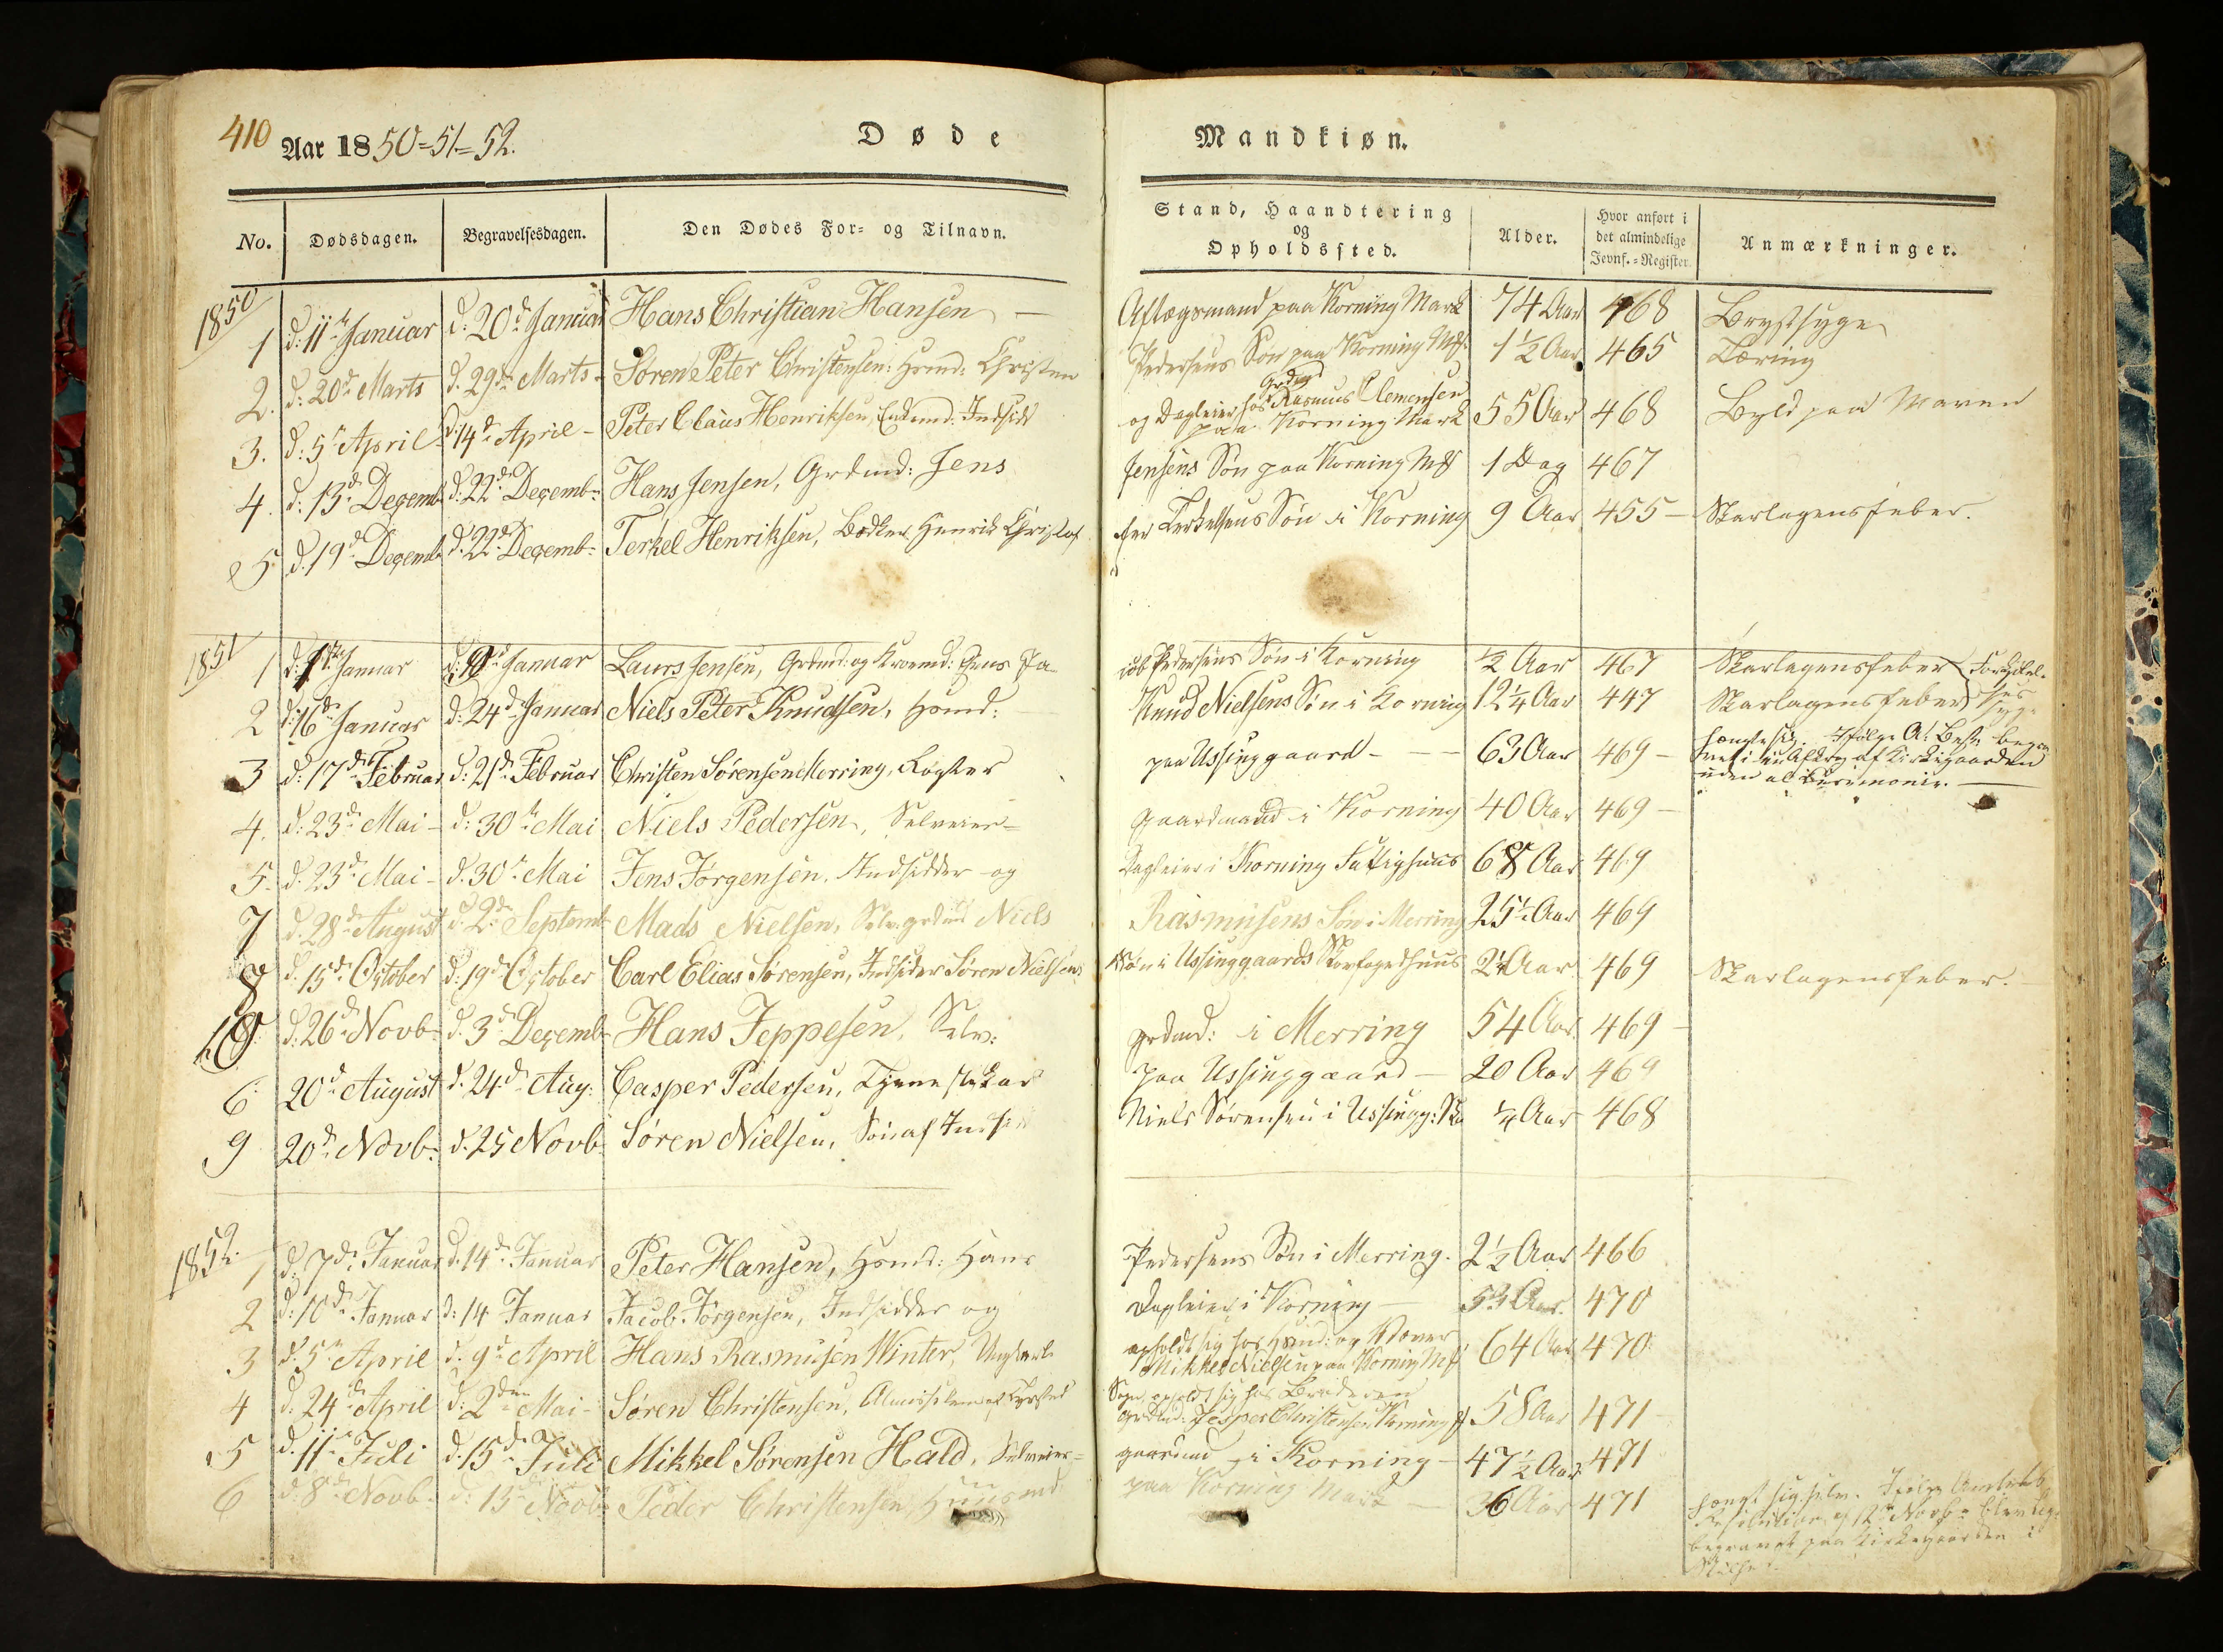 410 Aar 1850=51=52. Døde Mandkiøn.
No. Dødsdagen. Begravelsesdagen. Den Dødes For= og Tilnavn. Stand, Haandtering og Opholdssted. Alder. Hvor anført i det almindelige Jevnf.=Register. Anmærkninger.
1850
1 d: 11te Januar d: 20d Januar Hans Christian Hansen — Aftægsmand paa Korning Mark 74 Aar 468 Brystsyge
2. d: 20de Marts d. 29de Marts - Søren Peter Christensen: Hsmd: Christen Pedersens Søn paa Korning Mk 1½ Aar 465 Tæring
3. d: 5te April d 14de April - Peter Claus Henriksen, Enkemd. Indsidd og Dagleier hos Grdmd Rasmus Clemensen paa Korning Mark 55 Aar 468 Byld paa Maven
4. d: 13de Decemb d: 22de Decemb: Hans Jensen, Grdmd: Jens Jensens Søn paa Korning Mk 1 Dag 467
5 d. 19de Decemb d. 22de Decemb: Terkel Henriksen, Bødker Henrik Christof fer Terkelsens Søn i Korning 9 Aar 455 — Skarlagensfeber.
1851
1 d: 1ste Januar d: 9de Januar Laurs Jensen, Grdmd: og Kroemd: Jens Ja= cob Pedersens Søn i Korning ½ Aar 467 Skarlagensfeber
2 d: 16de Januar d: 24de Januar Niels Peter Knudsen, Hsmd: Knud Nielsens Søn i Korning 12¼ Aar 447 Skarlagensfeber
3 d: 17de Februar d: 21de Februar Christen Sørensen Merring, Røgter paa Ussinggaard - — — 63 Aar 469 — hængte sig. Ifølge A: Besl. begra vet i en Afkrog af Kirkegaarden uden al Ceremonie. —
4. d: 23de Mai - d: 30te Mai Niels Pedersen, Selveier= gaardmand i Korning 40 Aar 469 —
5. d. 23de Mai - d. 30te Mai Jens Jørgensen. Indsidder og Dagleier i Korning Fattighuus 68 Aar 469
7 d. 28de August d 2de Septemb Mads Nielsen, Selv. grdmd Niels Rasmusens Søn i Merring 25½ Aar 469
8 d. 15de October d. 19de October Carl Elias Sørensen, Indsidder Søren Nielsens Søn i Ussinggaards Skovfogedhuus 2¼ Aar 469 Skarlagensfeber.
10 d: 26de Novb: d. 3de Decemb Hans Jeppesen, Selv: grdmd: i Merring 54 Aar 469 —
6: 20de August d. 24de Aug: Casper Pedersen, Tjenestekar paa Ussinggaard — 20 Aar 469
9 20de Novb: d. 25 Novb. Søren Nielsen, Søn af Inds: Niels Sørensen i Ussingg: ¼ Aar 468
1852.
1 d. 7de Januar d. 14de Januar Peter Hansen, Hsmd: Hans Pedersens Søn i Merring. 2½ Aar 466
2 d: 10de Januar d: 14 Januar Jacob Jørgensen, Indsidder og Dagleier i Korning — 53 Aar. 470
3 d. 5te April d. 9de April Hans Rasmusen Winter, Ungkarl opholdt sig hos Hsmd: og Væver Mikkel Nielsen paa Korning Mk 64 Aar 470
4 d: 24de April d: 2den Mai - Søren Christensen, Almisselem af Sogn, opholdt sig hos Broderen Grdmd: Jesper Christensen Korning 58 Aar 471
5 d. 11te Juli d. 15de Juli Mikkel Sørensen Hald, Selveier= gaardmd i Korning - 47½ Aar 471
6 d: 8de Novb: d: 13de Novb: Peder Christensen Huusmd paa Korning Mark — 36 Aar 471 hængt sig selv. Ifølge Amtets Resolution af 12te Novb: blev Lig begravet paa Kirkegaarden i Stilhed.